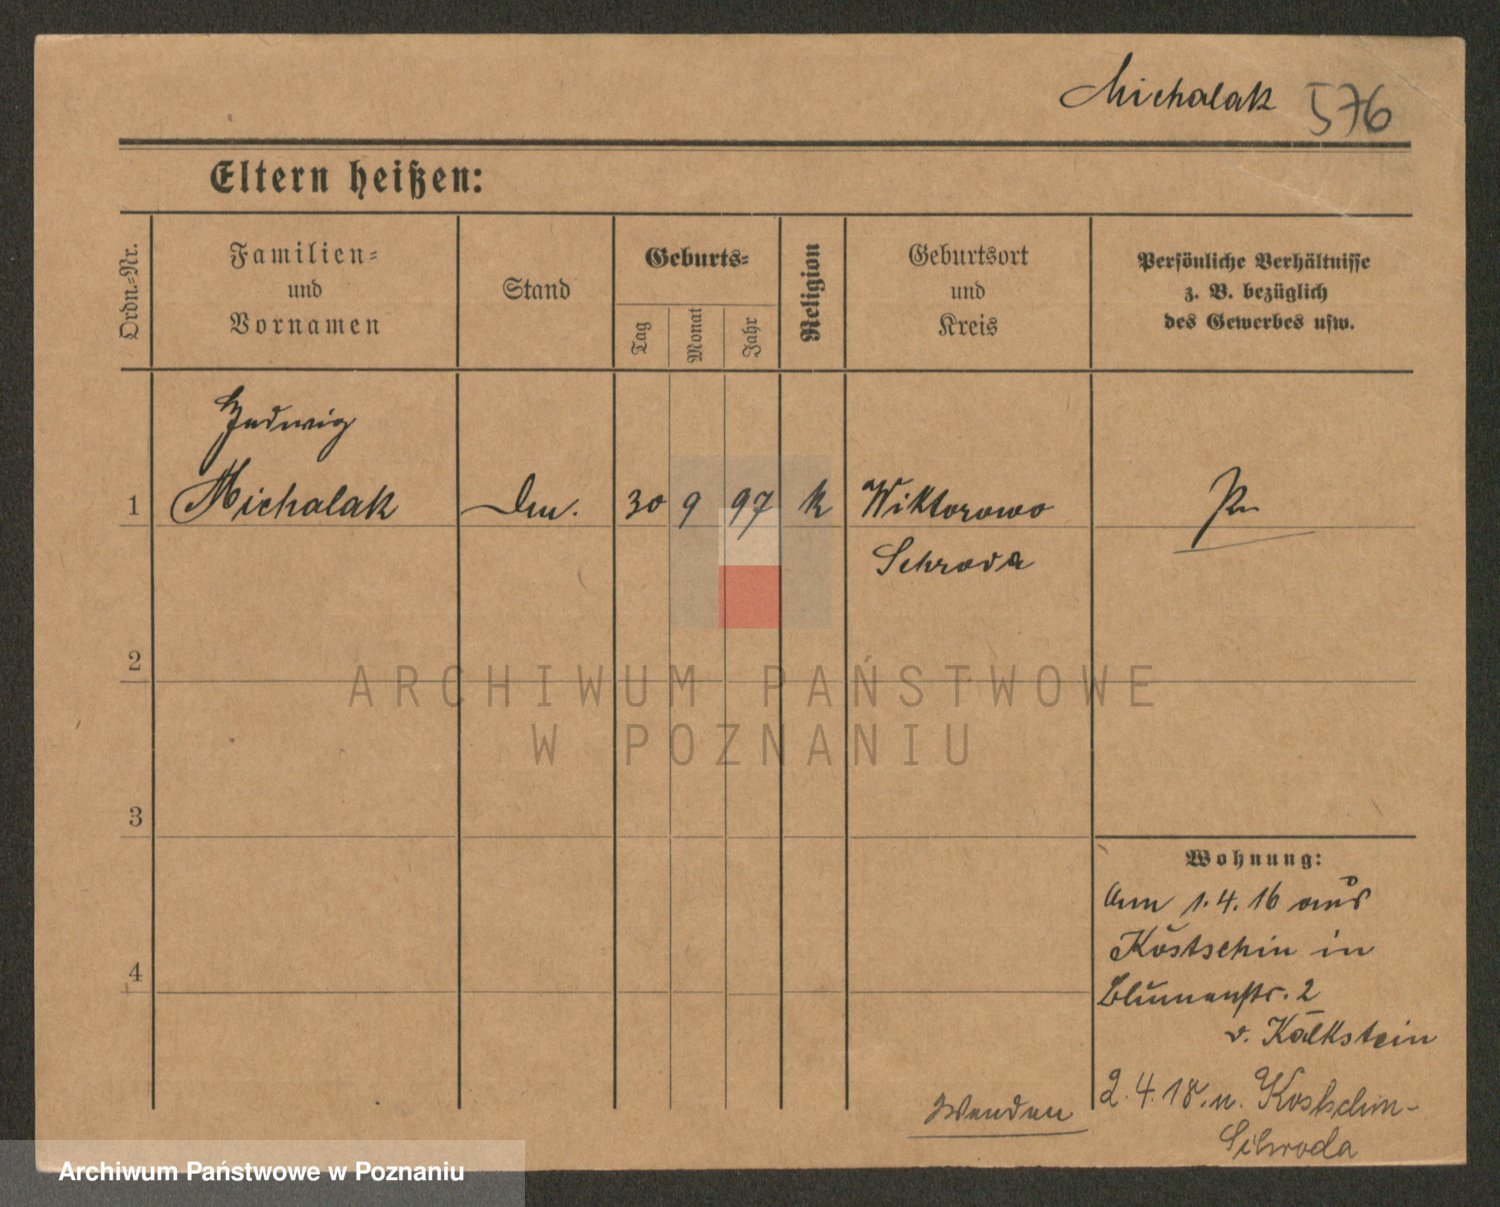 Michalak 576
Eltern heißen:
Ordn.-Nr.
Familien-
und
Vornamen
Stand
Geburts-
Tag
Monat
Jahr
Religion
Geburtsort
und
Kreis
Persönliche Verhältnisse
z. B. bezüglich
des Gewerbes usw.
Hedwig
1 Michalak 30 9 97 k Wiktorowo Pr
Schroda
2
ARCHIWUM PAŃSTWOWE
W POZNANIU
3
Wohnung:
Am 1.4.16 aus
Kostschin in
4
Blumenstr. 2
v. Kalkstein
Wenden 2.4.18. n. Kostschin-
Schroda
Archiwum Państwowe w Poznaniu